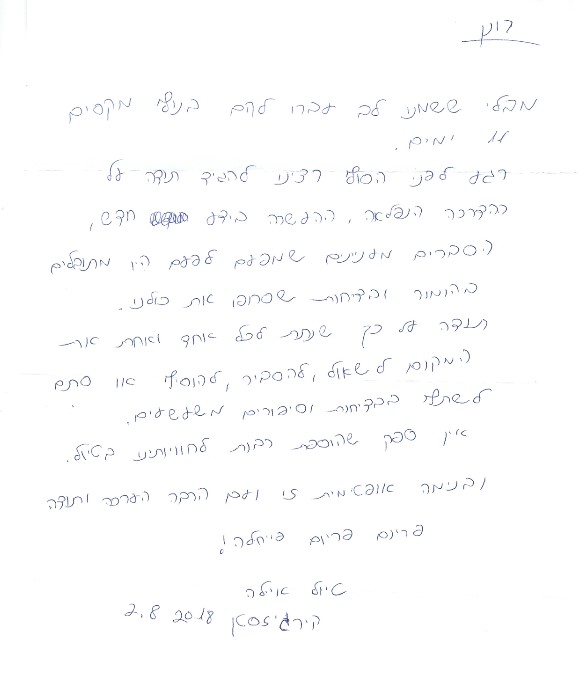 רון
מבלי ששמנו לב עברו להם בנוף מקסים
11 ימים.
רגע לפני הסוף רצינו להגיד תודה על
ההדרכה הנפלאה, ההעשרה בידע חדש,
הסברים מעניינים שמפעם לפעם היו מתובלים
בהומור ובדיחות שסחפו את כולנו.
תודה על כך שנתת לכל אחד ואחת את
המקום לשאול, להסביר, להוסיף או סתם
לשתף בבדיחות וסיפורים משעשעים.
אין ספק שהוספת רבות לחוויותינו בטיול.
ובנימה אופטימית זו ועם הרבה הערכה ותודה
פרינם פריום פייחלה!
טיול אילה
קירגיזסטן 2.8 2018